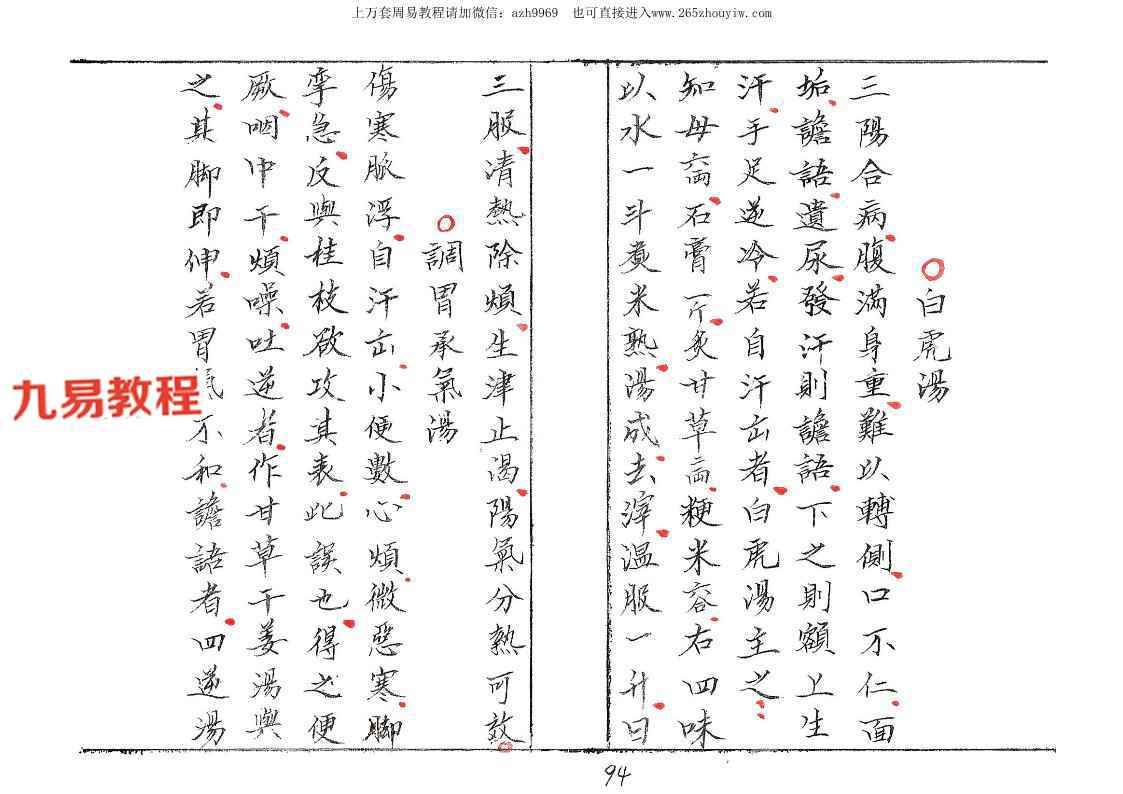 上万套周易教程请加微信：azh9969　也可直接进入www.265zhouyiw.com
○白虎湯
三陽合病腹滿身重難以轉側口不仁面
垢譫語遺尿發汗則譫語下之則額上生
汗手足逆冷若自汗出者白虎湯主之
知母 石膏一斤炙甘草 粳米 右四味
以水一斗煑米熟湯成去滓温服一升日
三服清熱除煩生津止渴陽氣分熱可效
○調胃承氣湯
傷寒脈浮自汗出小便數心煩微惡寒脚
孿急反與桂枝欲攻其表此誤也得之便
厥咽中干煩噪吐逆者作甘草干姜湯與
之其脚即伸若胃氣不和譫語者四逆湯
九易教程
94